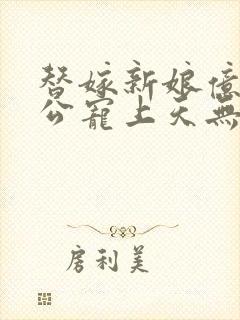 替嫁新娘億
公寵上天無
房利美